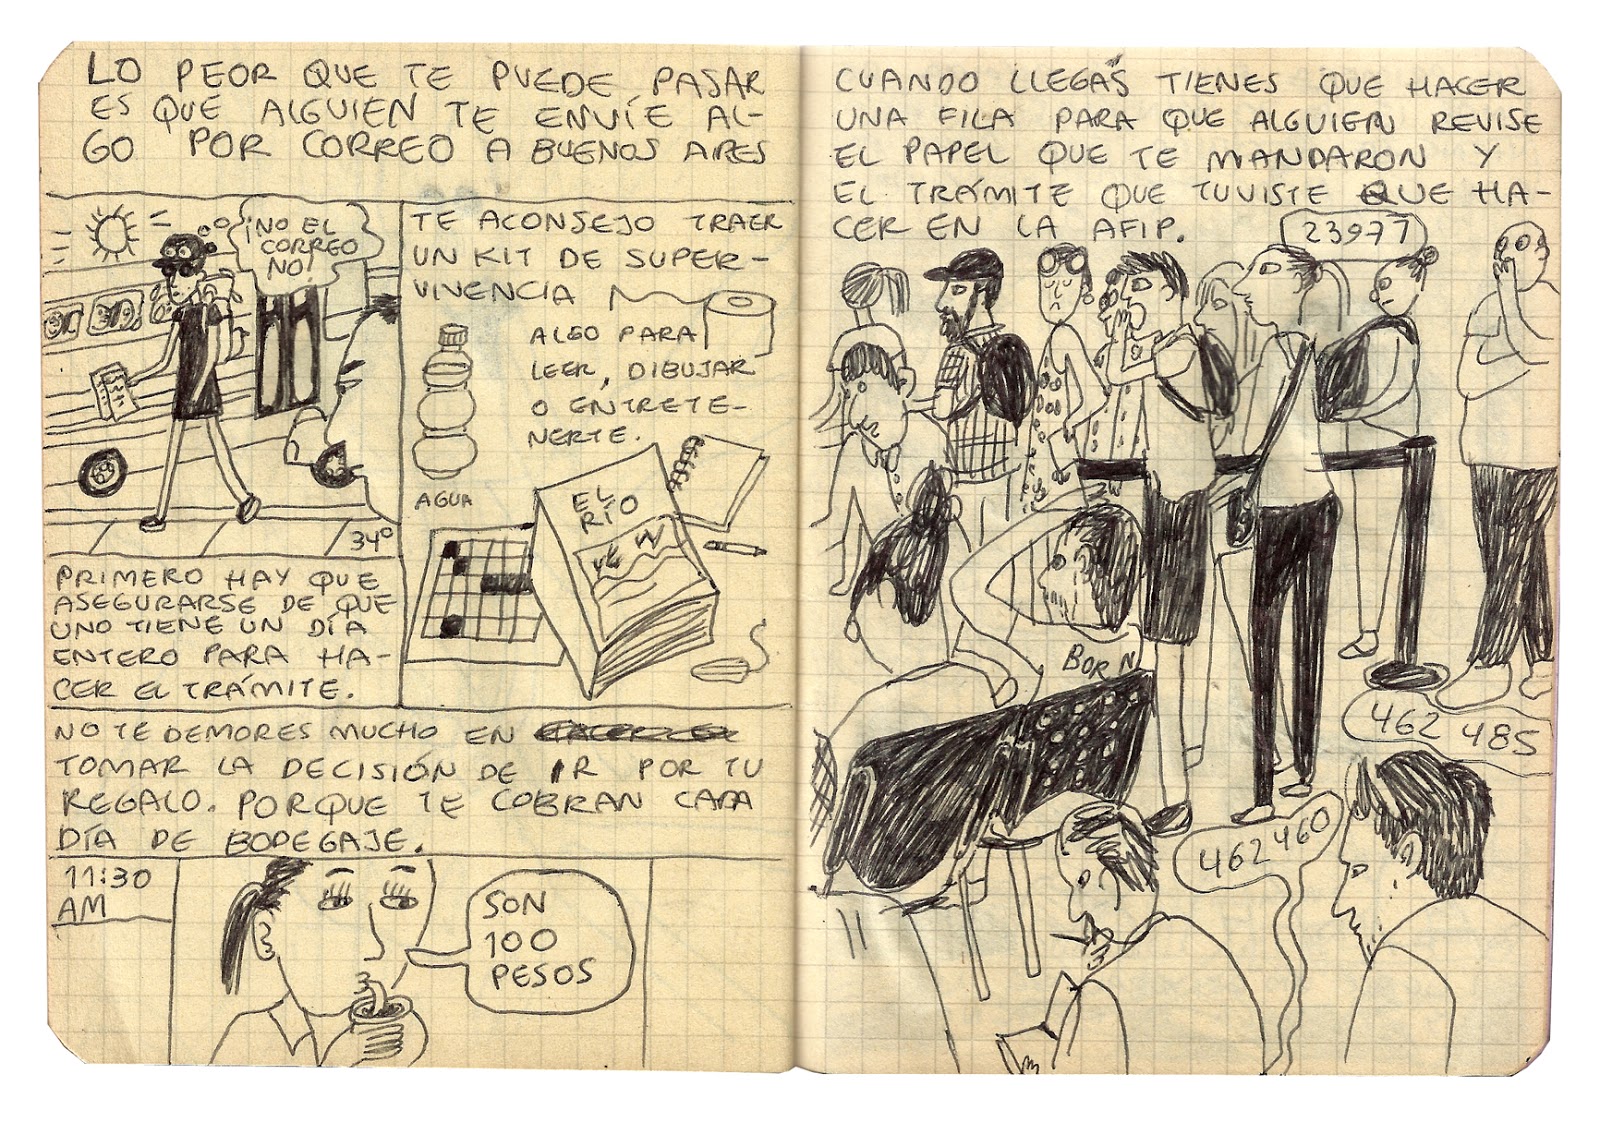 LO PEOR QUE TE PUEDE PASAR
ES QUE ALGUIEN TE ENVÍE AL-
GO POR CORREO A BUENOS AIRES
¡NO EL
CORREO
NO!
34°
PRIMERO HAY QUE
ASEGURARSE DE QUE
UNO TIENE UN DÍA
ENTERO PARA HA-
CER EL TRÁMITE.
TE ACONSEJO TRAER
UN KIT DE SUPER-
VIVENCIA
ALGO PARA
LEER, DIBUJAR
O ENTRETE-
NERTE.
AGUA
EL
RÍO
NO TE DEMORES MUCHO EN
TOMAR LA DECISIÓN DE IR POR TU
REGALO. PORQUE TE COBRAN CADA
DÍA DE BODEGAJE.
11:30
AM
SON
100
PESOS
CUANDO LLEGAS TIENES QUE HACER
UNA FILA PARA QUE ALGUIEN REVISE
EL PAPEL QUE TE MANDARON Y
EL TRÁMITE QUE TUVISTE QUE HA-
CER EN LA AFIP.
23977
BORN
462 485
462460